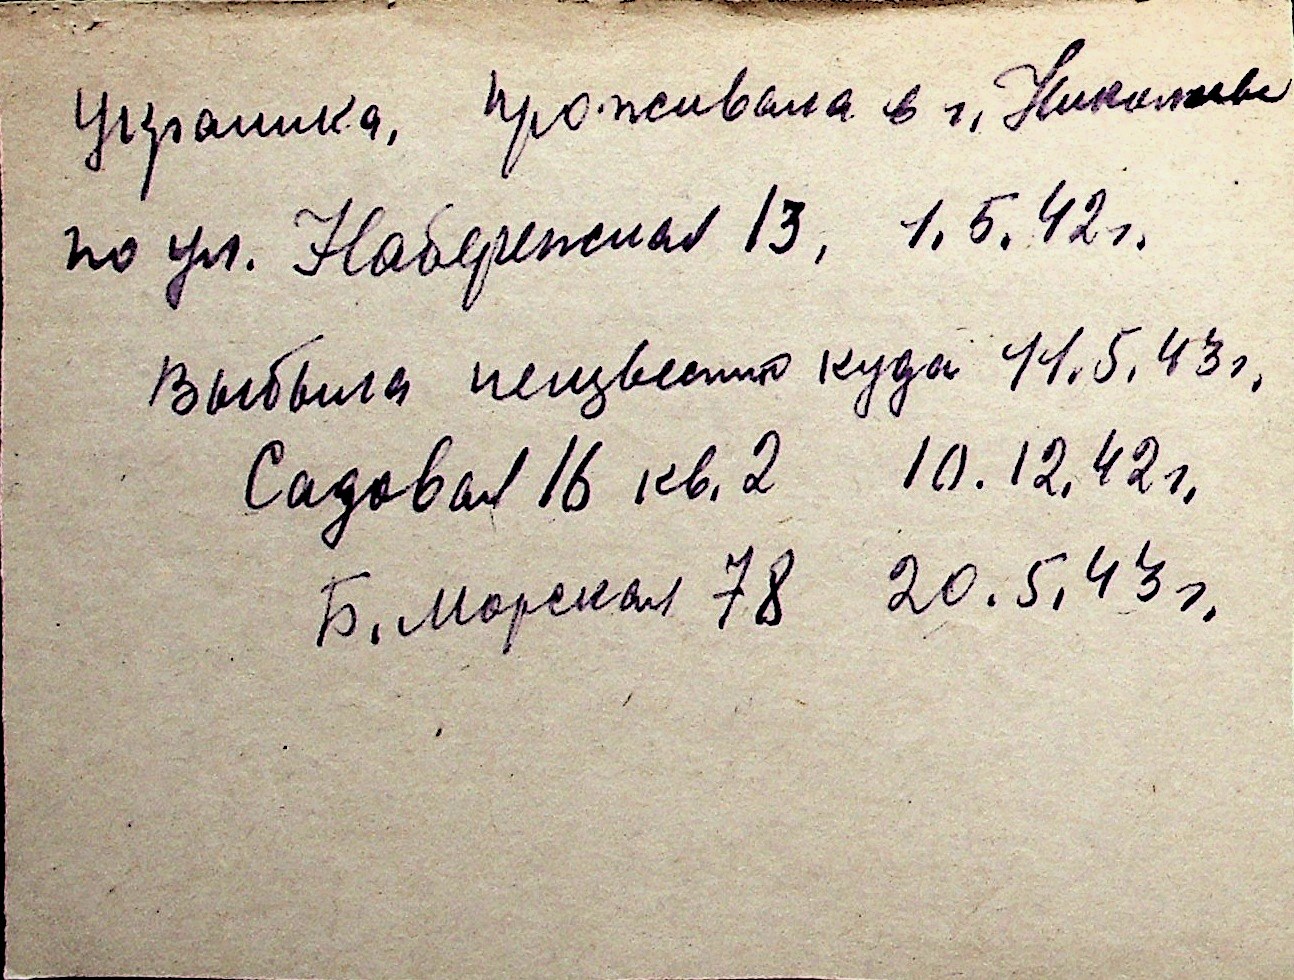 Украинка, проживала в г. Николаеве
по ул. Набережная 13, 1.5.42г.
Выбыла неизвестно куда 11.5.43г.
Садовая 16 кв. 2 10.12.42г.
Б. Морская 78 20.5.43г.